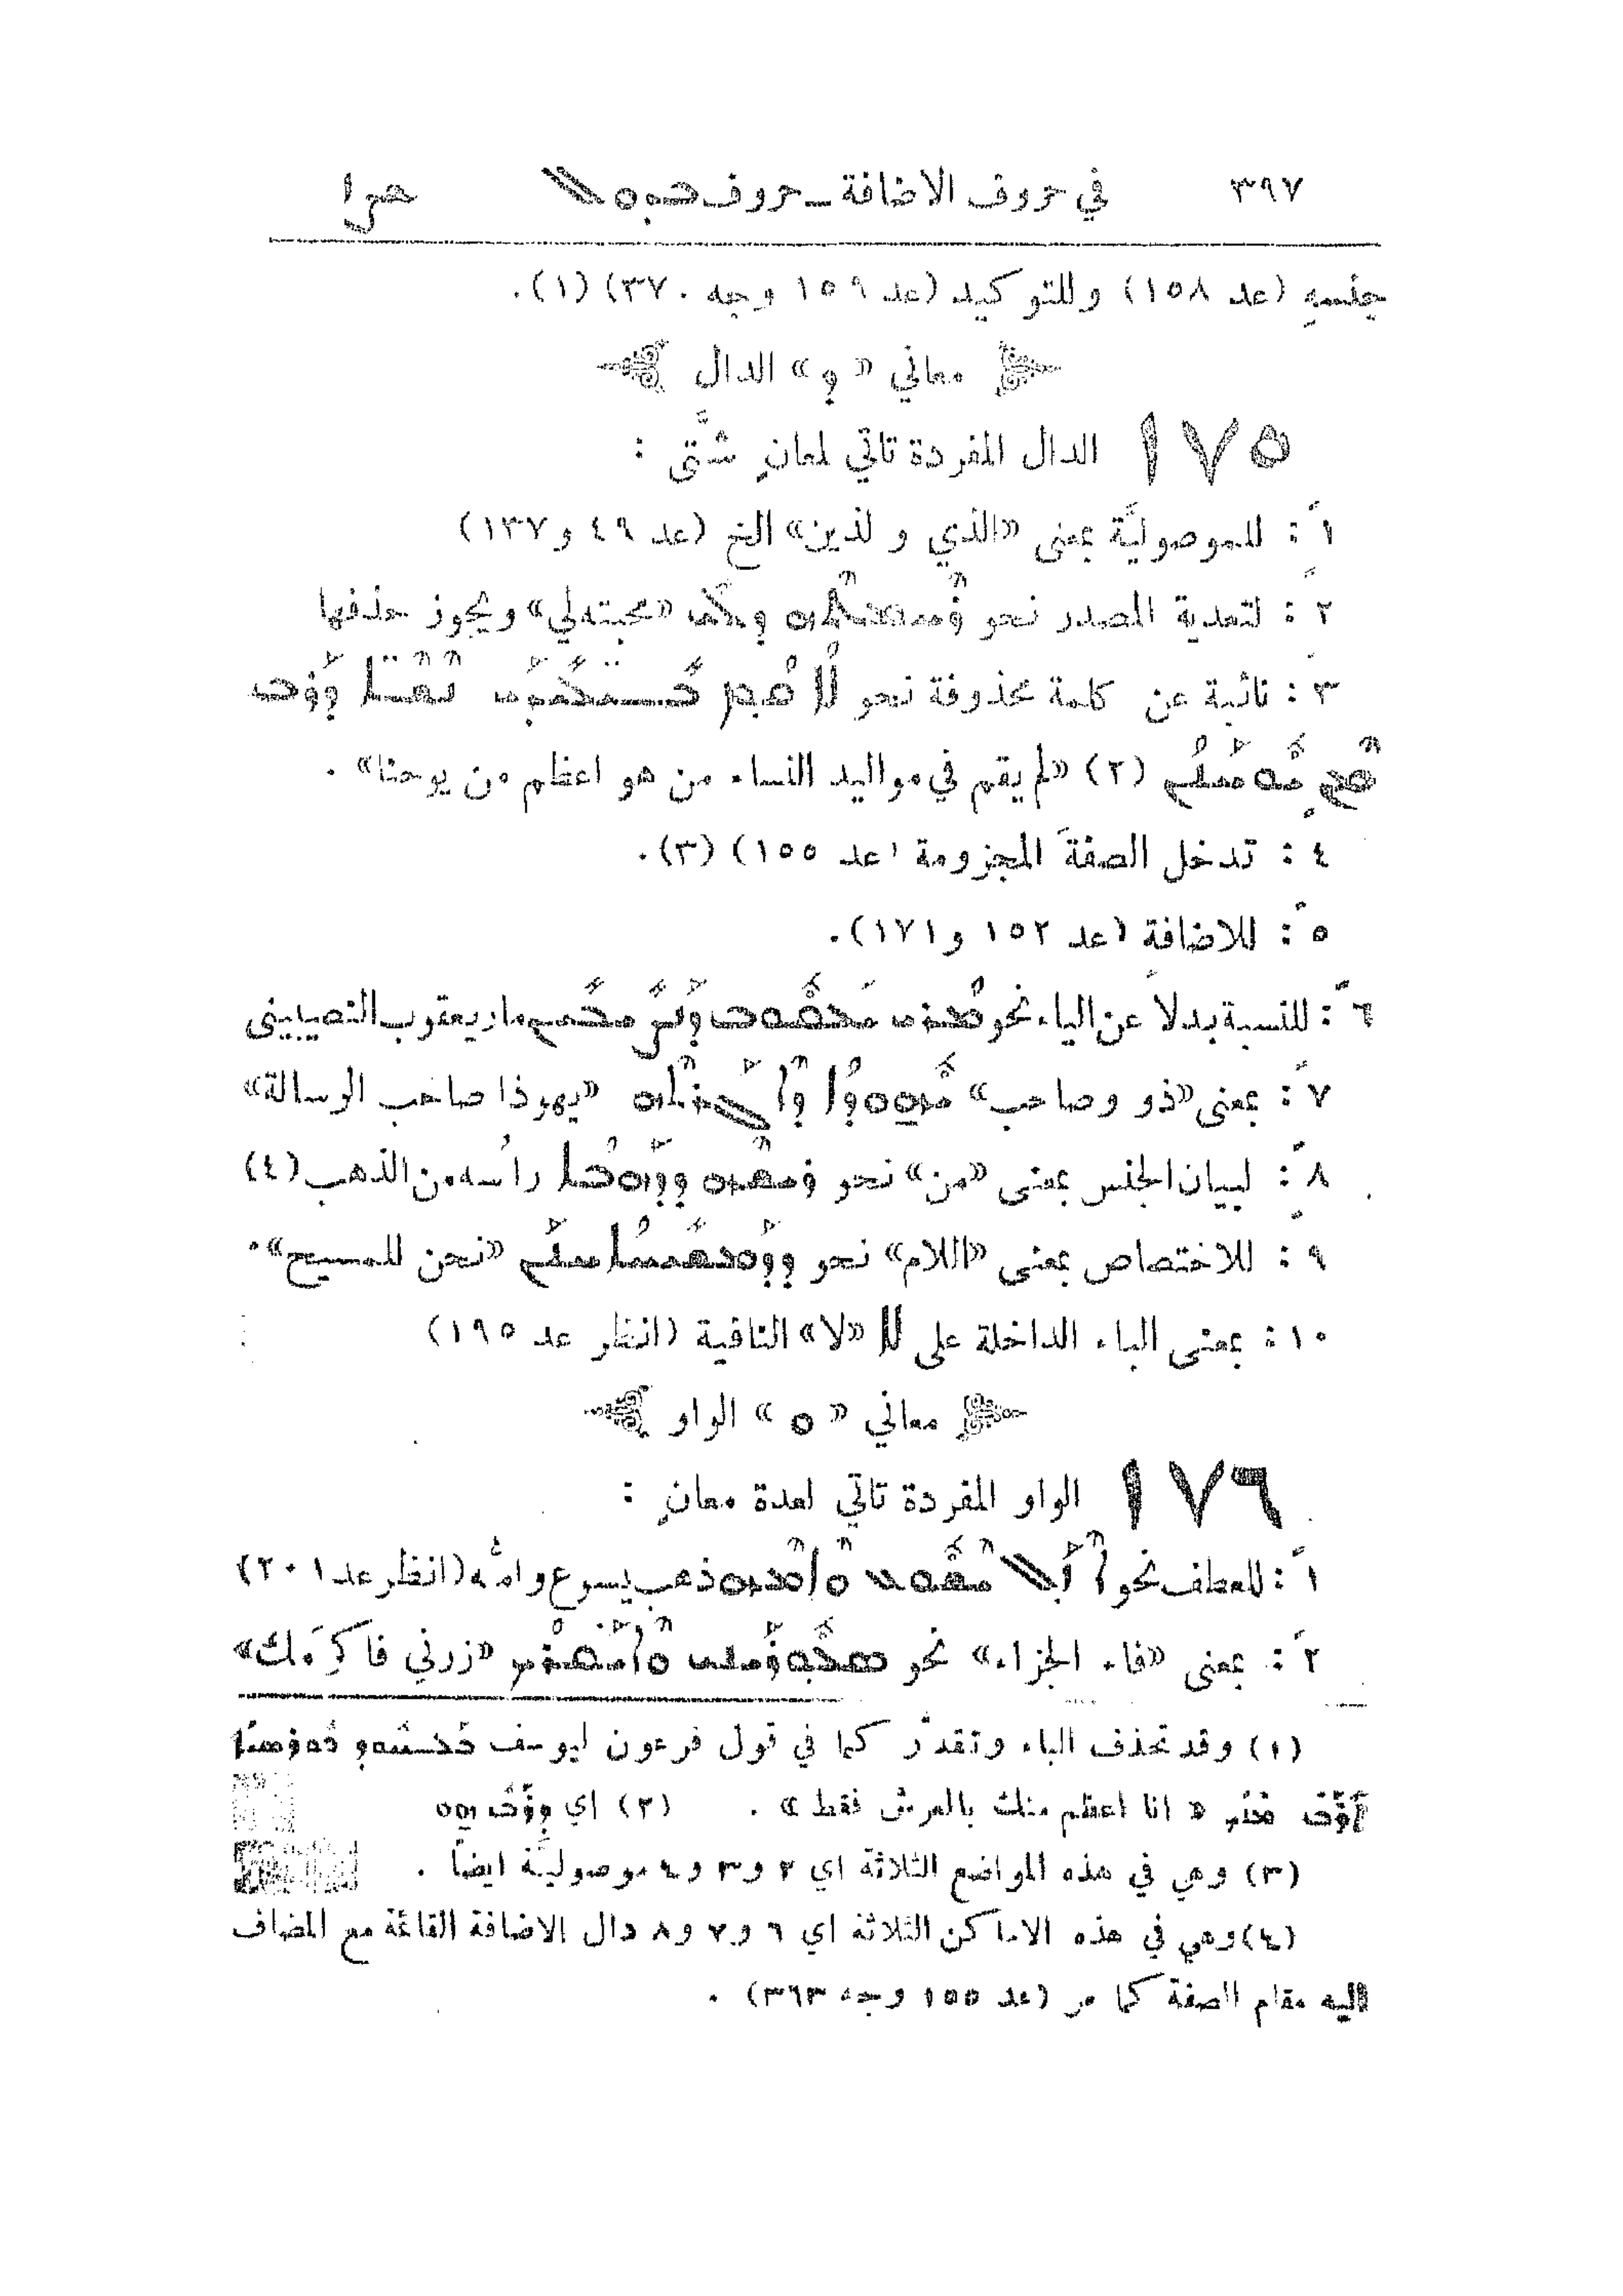 ٣٩٧ في حروف الاضافة ــ حروف ܒܕܘܠ
جنسهِ (عد ١٥٨) وللتوكيد (عد ١٥٩ وجه ٣٧٠) (١).
معاني «ܕ» الدال
١٧٥ الدال المفردة تاتي لمعانٍ شتَّى :
١ً : للموصوليَّة بمعنى «الذي و لذين» الخ (عد ٤٩ و١٣٧)
٢ً : لتعدية المصدر نحو ܪܚܡܬܗ ܕܠܝ «محبته لي» ويجوز حذفها
٣ً : نائبة عن كلمة محذوفة نحو ܠܐ ܩܡ ܒܝܠܝܕܝ ܢܫܐ ܕܪܒ
ܡܢ ܝܘܚܢܢ (٢) «لم يقم في مواليد النساء من هو اعظم من يوحنا» .
٤ : تدخل الصفةَ المجزومة (عد ١٥٥) (٣).
٥ً : للاضافة (عد ١٥٢ و١٧١).
٦ً : للنسبة بدلاً عن الياء نحو ܡܪܝ ܝܥܩܘܒ ܕܢܨܝܒܝܢ مار يعقوب النصيبيني
٧ً : بمعنى «ذو وصاحب» ܝܗܘܕܐ ܕܐܓܪܬܐ «يهوذا صاحب الرسالة»
٨ً : لبيان الجنس بمعنى «من» نحو ܪܝܫܗ ܕܕܗܒܐ راسه من الذهب (٤)
٩ً : للاختصاص بمعنى «اللام» نحو ܕܡܫܝܚܐ ܚܢܢ «نحن للمسيح».
١٠ : بمعنى الباء الداخلة على ܠܐ «لا» النافية (انظر عد ١٩٥)
معاني «ܘ» الواو
١٧٦ الواو المفردة تاتي لعدة معانٍ :
١ً : للعطف نحو ܐܙܠ ܝܫܘܥ ܘܐܡܗ ذهب يسوع وامُّه (انظر عد ٢٠١)
٢ً : بمعنى «فاء الجزاء» نحو ܣܥܘܪܝܢܝ ܘܐܝܩܪܟ «زرني فاكرِمك»
(١) وقد تحذف الباء وتقدَّر كما في قول فرعون ليوسف ܒܠܚܘܕ ܟܘܪܣܝܐ
ܐܪܒ ܡܢܟ «انا اعظم منك بالعرش فقط» . (٢) اي ܕܪܒ ܗܘ
(٣) وهي في هذه المواضع الثلاثة اي ٢ و٣ و٤ موصوليَّة ايضاً .
(٤) وهي في هذه الاماكن الثلاثة اي ٦ و٧ و٨ دال الاضافة القائمة مع المضاف
اليه مقام الصفة كما مر (عد ١٥٥ وجه ٣٦٣) .